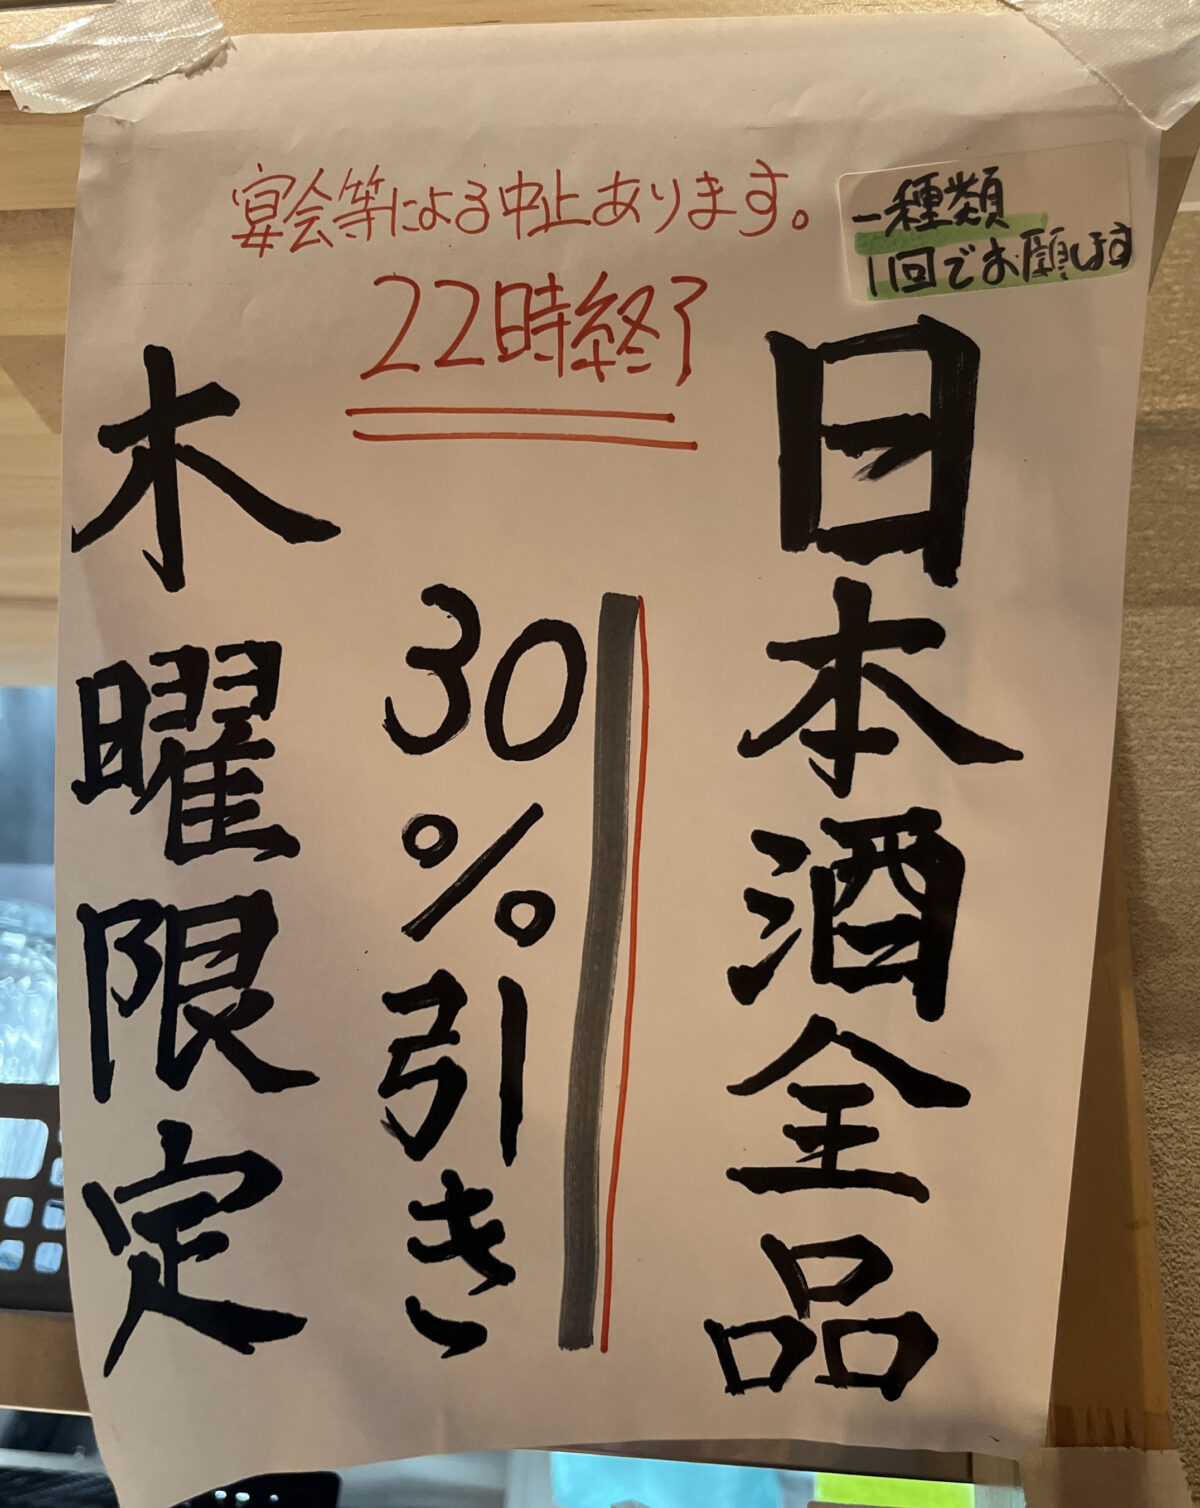 宴会等による中止あります。
22時終了
一種類
1回でお願します
日本酒全品
30%引き
木曜限定